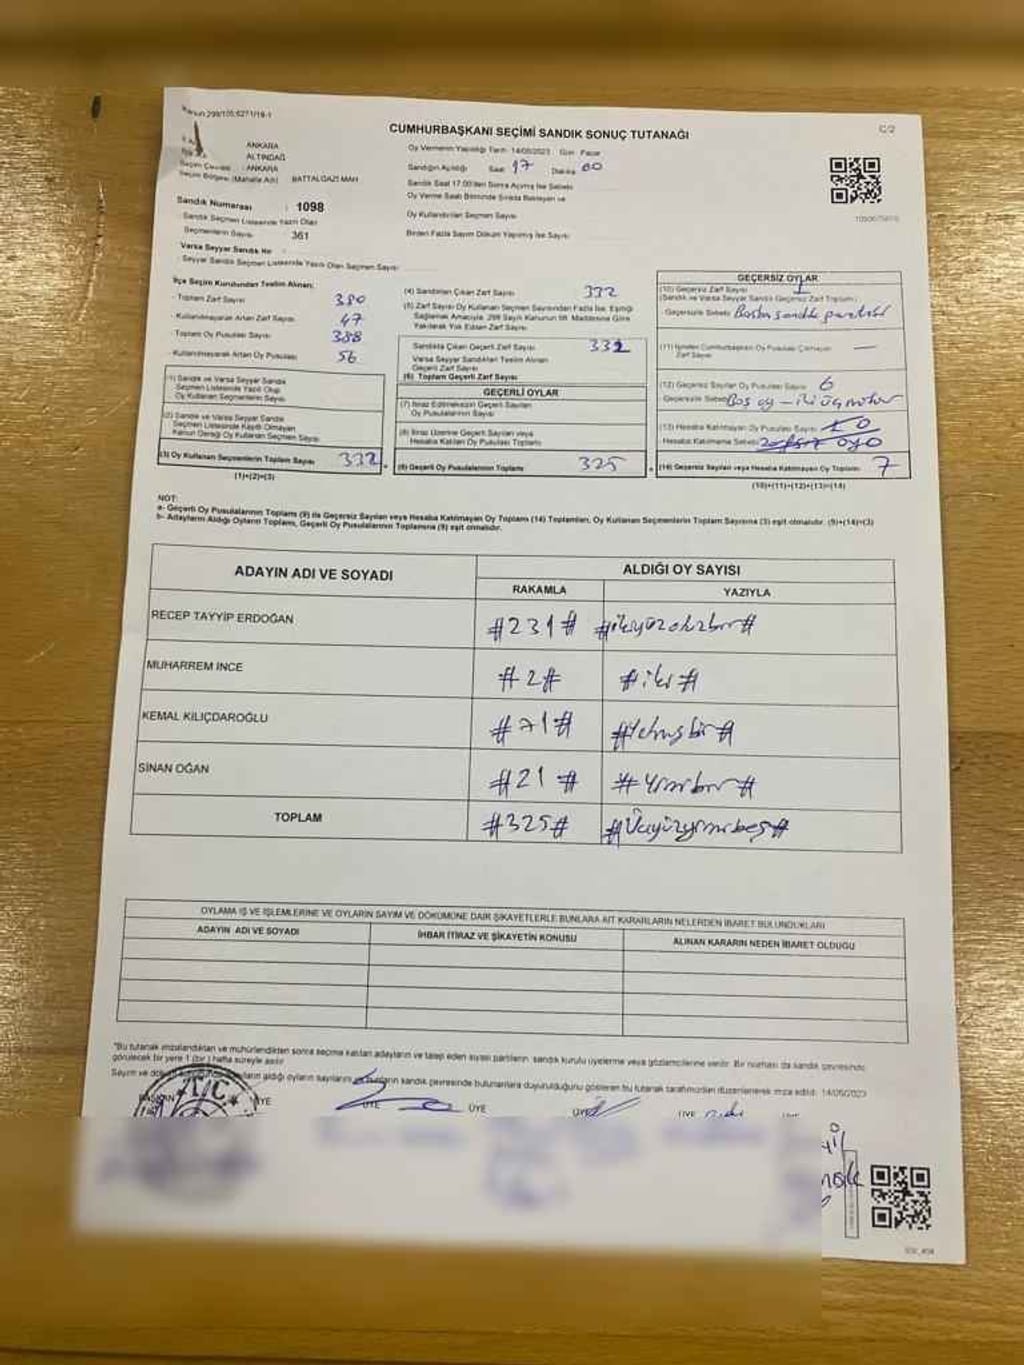 Kanun:298/105;6271/19-1
C/2
CUMHURBAŞKANI SEÇİMİ SANDIK SONUÇ TUTANAĞI
ANKARA
ALTINDAĞ
Seçim Çevresi : ANKARA
Seçim Bölgesi (Mahalle Adı) BATTALGAZİ MAH
Sandık Numarası : 1098
Sandık Seçmen Listesinde Yazılı Olan
Seçmenlerin Sayısı 361
Varsa Seyyar Sandık Nr
Seyyar Sandık Seçmen Listesinde Yazılı Olan Seçmen Sayısı
Oy Vermenin Yapıldığı Tarih: 14/05/2023 Gün: Pazar
Sandığın Açıldığı Saat 17 Dakika 00
Sandık Saat 17.00'den Sonra Açılmış İse Sebebi
Oy Verme Saati Bitiminde Sırada Bekleyen ve
Oy Kullandırılan Seçmen Sayısı
Birden Fazla Sayım Döküm Yapılmış İse Sayısı
İlçe Seçim Kurulundan Teslim Alınan:
Toplam Zarf Sayısı 380
Kullanılmayarak Artan Zarf Sayısı 47
Toplam Oy Pusulası Sayısı 388
Kullanılmayarak Artan Oy Pusulası 56
(1) Sandık ve Varsa Seyyar Sandık
Seçmen Listesinde Yazılı Olup
Oy Kullanan Seçmenlerin Sayısı
(2) Sandık ve Varsa Seyyar Sandık
Seçmen Listesinde Kayıtlı Olmayan
Kanun Gereği Oy Kullanan Seçmen Sayısı
(3) Oy Kullanan Seçmenlerin Toplam Sayısı 332
(1)+(2)=(3)
(4) Sandıktan Çıkan Zarf Sayısı 332
(5) Zarf Sayısı Oy Kullanan Seçmen Sayısından Fazla İse, Eşitliği
Sağlamak Amacıyla, 298 Sayılı Kanunun 98. Maddesine Göre
Yakılarak Yok Edilen Zarf Sayısı
Sandıkta Çıkan Geçerli Zarf Sayısı 332
Varsa Seyyar Sandıktan Teslim Alınan
Geçerli Zarf Sayısı
(6) Toplam Geçerli Zarf Sayısı
GEÇERLİ OYLAR
(7) İtiraz Edilmeksizin Geçerli Sayılan
Oy Pusulasının Sayısı
(8) İtiraz Üzerine Geçerli Sayılan veya
Hesaba Katılan Oy Pusulası Toplamı
(9) Geçerli Oy Pusulalarının Toplamı 325
GEÇERSİZ OYLAR
(10) Geçersiz Zarf Sayısı 1
(Sandık ve Varsa Seyyar Sandık Geçersiz Zarf Toplamı)
Geçersizlik Sebebi
(11) İçinden Cumhurbaşkanı Oy Pusulası Çıkmayan
Zarf Sayısı —
(12) Geçersiz Sayılan Oy Pusulası Sayısı 6
Geçersizlik Sebebi Boş oy – iki üç mühür
(13) Hesaba Katılmayan Oy Pusulası Sayısı 0
Hesaba Katılmama Sebebi
(14) Geçersiz Sayılan veya Hesaba Katılmayan Oy Toplamı 7
(10)+(11)+(12)+(13)=(14)
NOT:
a- Geçerli Oy Pusulasının Toplamı (9) ile Geçersiz Sayılan veya Hesaba Katılmayan Oy Toplamı (14) Toplamları, Oy Kullanan Seçmenlerin Toplam Sayısına (3) eşit olmalıdır. (9)+(14)=(3)
b- Adayların Aldığı Oyların Toplamı, Geçerli Oy Pusulalarının Toplamına (9) eşit olmalıdır.
ADAYIN ADI VE SOYADI
ALDIĞI OY SAYISI
RAKAMLA
YAZIYLA
RECEP TAYYİP ERDOĞAN #231# #ikiyüzotuzbir#
MUHARREM İNCE #2# #iki#
KEMAL KILIÇDAROĞLU #71# #Yetmişbir#
SİNAN OĞAN #21# #Yirmibir#
TOPLAM #325# #Üçyüzyirmibeş#
OYLAMA İŞ VE İŞLEMLERİNE VE OYLARIN SAYIM VE DÖKÜMÜNE DAİR ŞİKAYETLERLE BUNLARA AİT KARARLARIN NELERDEN İBARET BULUNDUKLARI
ADAYIN ADI VE SOYADI
İHBAR İTİRAZ VE ŞİKAYETİN KONUSU
ALINAN KARARIN NEDEN İBARET OLDUĞU
"Bu tutanak imzalandıktan ve mühürlendikten sonra seçime katılan adayların ve talep eden siyasi partilerin sandık kurulu üyelerine veya gözlemcilerine verilir. Bir nüshası da sandık çevresinde
görülecek bir yere 1 (bir) hafta süreyle asılır
Sayım ve aldığı oyların sayılarını sandık çevresinde bulunanlara duyurulduğunu gösteren bu tutanak tarafımızdan düzenlenerek imza edildi. 14/05/2023
T.C.
ÜYE ÜYE ÜYE ÜYE ÜYE